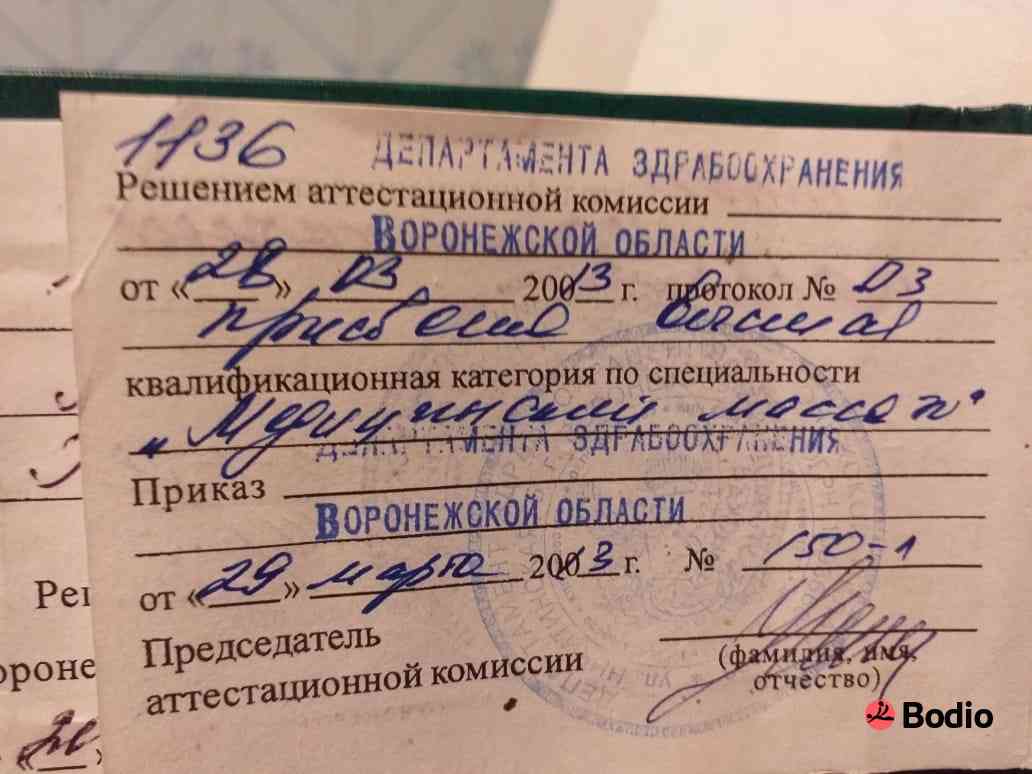 1136 ДЕПАРТАМЕНТА ЗДРАВООХРАНЕНИЯ
Решением аттестационной комиссии
ВОРОНЕЖСКОЙ ОБЛАСТИ
от «28» 03 2013 г. протокол № 03
присвоена высшая
квалификационная категория по специальности
„Медицинский массаж"
ДЕПАРТАМЕНТА ЗДРАВООХРАНЕНИЯ
Приказ
ВОРОНЕЖСКОЙ ОБЛАСТИ
от «29» марта 2013 г. № 150-1
Председатель
аттестационной комиссии
(фамилия, имя,
отчество)
Bodio